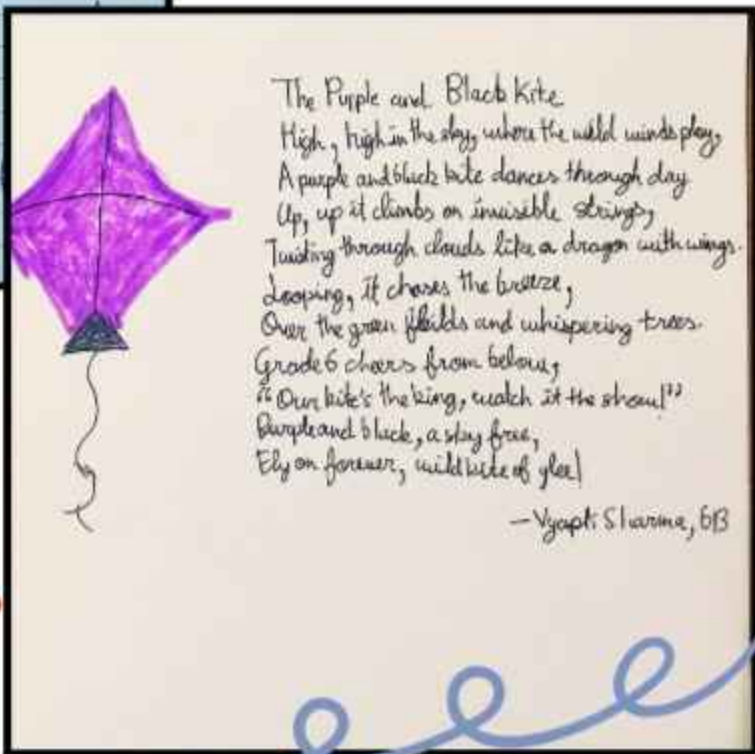 The Purple and Black Kite
High, high in the sky, where the wild winds play,
A purple and black kite dances through day
Up, up it climbs on invisible strings,
Twisting through clouds like a dragon with wings.
Looping, it chases the breeze,
Over the green fields and whispering trees.
Grade 6 cheers from below,
"Our kite's the king, watch it the show!"
Purple and black, a sky free,
Fly on forever, wild kite of glee!
—Vyapti Sharma, 6B